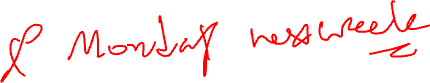 Monday next week